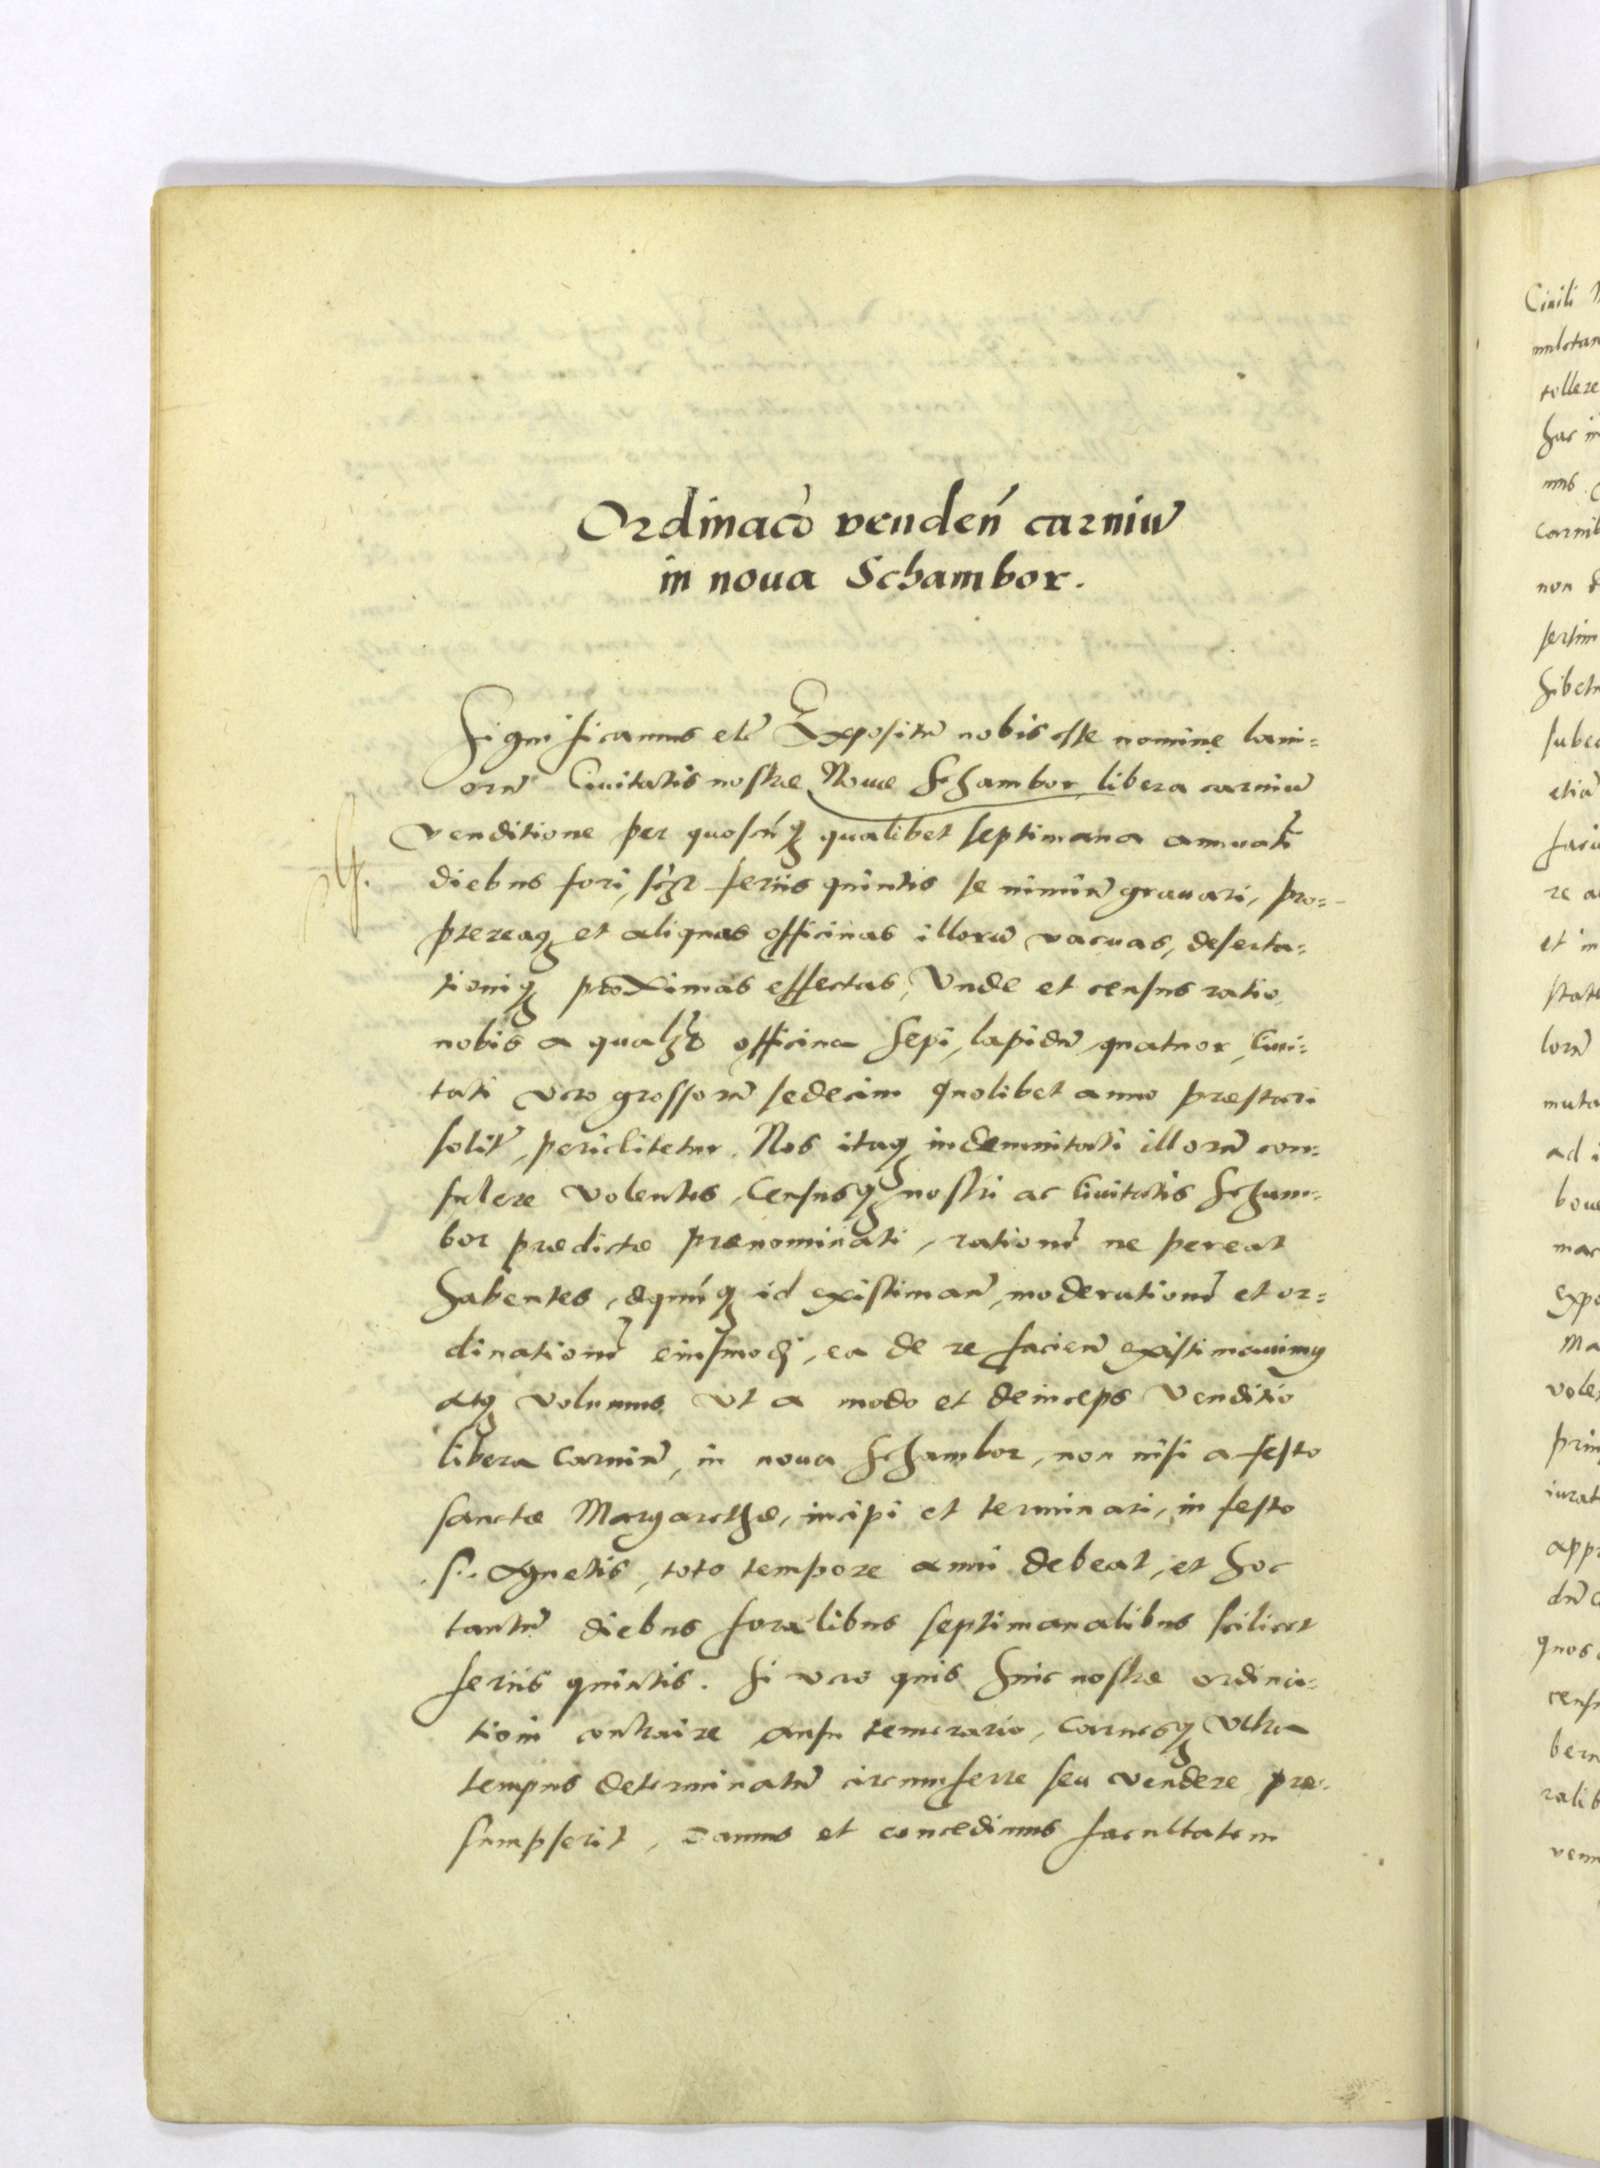 Ordinaco venden carniu
in noua Schambor.
Significamus etc Expositu nobis esse nomine lani=
oru Ciuitatis nostrae Nouae Schambor libera carniu
venditione per quoscunq qualibet septimana annuati
diebus fori, scz feriis quintis se nimiu grauari, pro=
ptereaq et aliquas officinas illoru vacuas, deserta=
tioniq proximas effectas, Vnde et census ratio
nobis a qualz officina sepi, lapidu quatuor, Ciui=
tati vero grossoru sedecim quolibet anno praestari
solit, periclitetur. Nos itaq indemnitati illoru con=
sulere volentes, Censusq nostri ac Ciuitatis Scham=
bor praedictae praenominati, ratione ne pereat
habentes, aequuq id existiman, moderatione et or=
dinatione eiusmodi, ea de re facien existimauimus
atq volumus vt a modo et deinceps venditio
libera carniu, in noua Schambor, non nisi a festo
sanctae Margarethae, incipi et terminari, in festo
S. Agnetis, toto tempore anni debeat, et hoc
tantu diebus foralibus septimanalibus scilicet
feriis quintis. Si vero quis huic nostrae ordina=
tioni contraire ausu temerario, carnesq vltra
tempus determinatu circumferre seu vendere prae=
sumpserit, Damus et concedimus facultatem
Ciuili
mulctan
tollere
hac in
mus
carnib
non
sertim
hibet
etia
re a
et in
stat
loru
muta
ad i
mar
Ma
vole
iurat
app
quos
cens
ralib